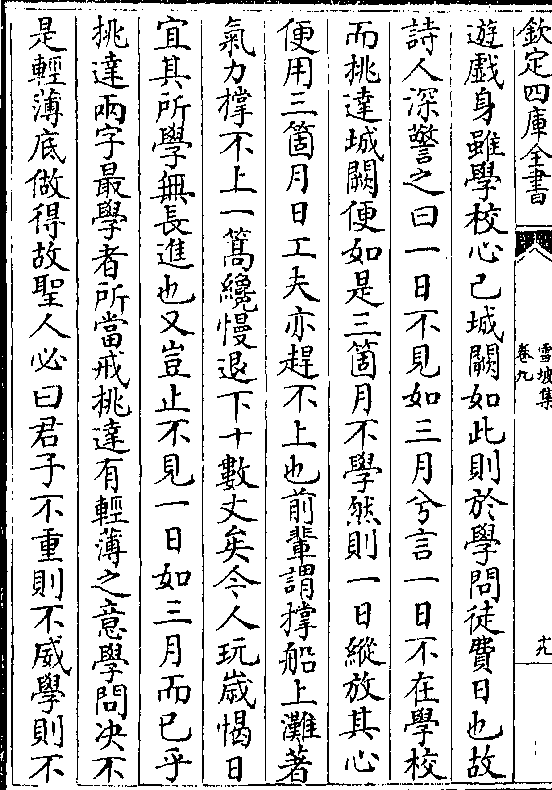 欽定四庫全書
雪坡集
卷九
十九
遊戲身雖學校心已城闕如此則於學問徒費日也故
詩人深警之曰一日不見如三月兮言一日不在學校
而挑達城闕便如是三箇月不學然則一日縱放其心
便用三箇月日工夫亦趕不上也前輩謂撐船上灘著
氣力撐不上一篙纔慢退下十數丈矣今人玩歲愒日
宜其所學無長進也又豈止不見一日如三月而已乎
挑達兩字最學者所當戒挑達有輕薄之意學問決不
是輕薄底做得故聖人必曰君子不重則不威學則不